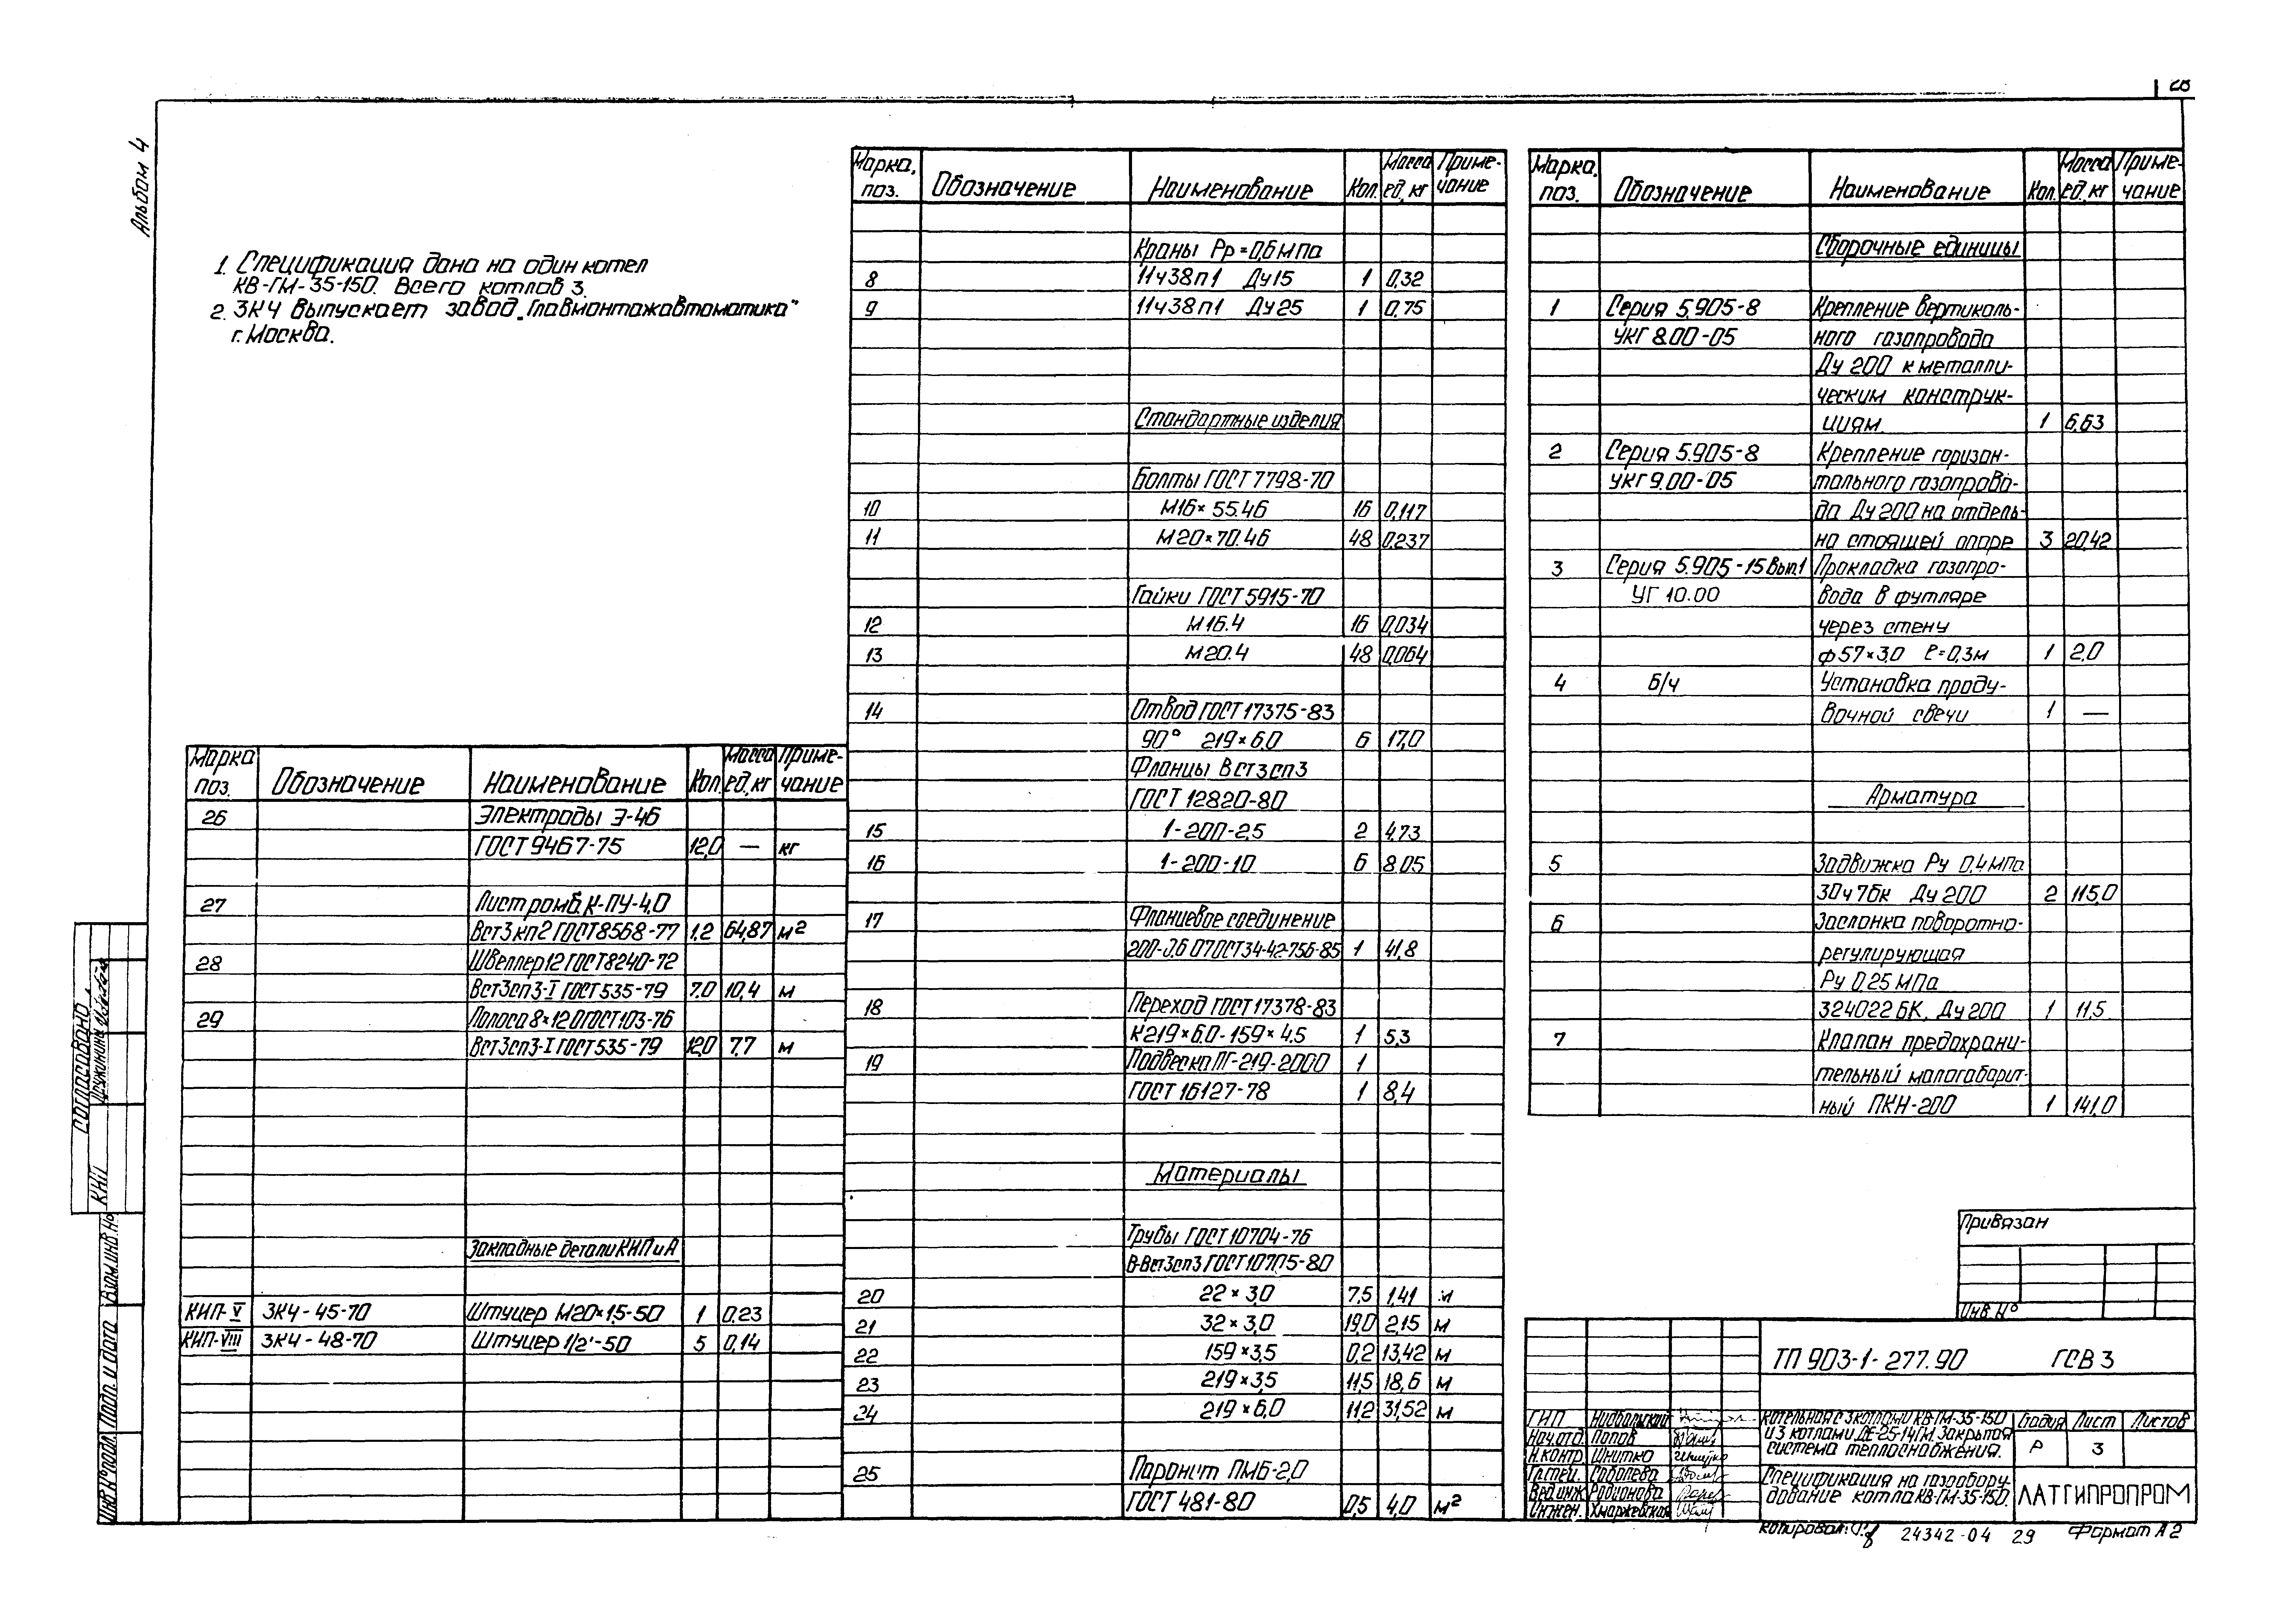 28
Альбом 4
1. Спецификация дана на один котел
КВ-ГМ-35-150. Всего котлов 3.
2. ЗКЧ выпускает завод „Главмонтажавтоматика"
г. Москва.
Марка, поз. Обозначение Наименование Кол. Масса ед, кг Приме-чание
Сборочные единицы
1 Серия 5.905-8 Крепление вертикаль-
УКГ 8.00-05 ного газопровода
Ду 200 к металли-
ческим конструк-
циям 1 6,63
2 Серия 5.905-8 Крепление горизон-
УКГ 9.00-05 тального газопрово-
да Ду 200 на отдель-
но стоящей опоре 3 20,42
3 Серия 5.905-15 Вып.1 Прокладка газопро-
УГ 10.00 вода в футляре
через стену
ф57×3,0 ℓ=0,3м 1 2,0
4 б/ч Установка проду-
вочной свечи 1 —
Арматура
5 Задвижка Ру 0,4 МПа
30ч7бк Ду 200 2 115,0
6 Заслонка поворотно-
регулирующая
Ру 0,25 МПа
324022БК, Ду 200 1 11,5
7 Клапан предохрани-
тельный малогабарит-
ный ПКН-200 1 141,0
Марка, поз. Обозначение Наименование Кол. Масса ед, кг Приме-чание
Краны Рр=0,6 МПа
8 11ч38п1 Ду15 1 0,32
9 11ч38п1 Ду25 1 0,75
Стандартные изделия
Болты ГОСТ 7798-70
10 М16×55.46 16 0,117
11 М20×70.46 48 0,237
Гайки ГОСТ 5915-70
12 М16.4 16 0,034
13 М20.4 48 0,064
14 Отвод ГОСТ 17375-83
90° 219×6,0 6 17,0
Фланцы Вст3сп3
ГОСТ 12820-80
15 1-200-2,5 2 4,73
16 1-200-10 6 8,05
17 Фланцевое соединение
200-0,6 07 ОСТ 34-42-756-85 1 41,8
18 Переход ГОСТ 17378-83
К219×6.0-159×4.5 1 5,3
19 Подвеска ПГ-219-2000 1
ГОСТ 16127-78 1 8,4
Материалы
Трубы ГОСТ 10704-76
В-Вст3сп3 ГОСТ 10705-80
20 22×3,0 7,5 1,41 м
21 32×3,0 19,0 2,15 м
22 159×3,5 0,2 13,42 м
23 219×3,5 11,5 18,6 м
24 219×6,0 11,2 31,52 м
25 Паронит ПМБ-2,0
ГОСТ 481-80 0,5 4,0 м²
Марка поз. Обозначение Наименование Кол. Масса ед, кг Приме-чание
26 Электроды Э-46
ГОСТ 9467-75 12,0 — кг
27 Лист ромб. К-ПУ-4,0
Вст3кп2 ГОСТ 8568-77 1,2 64,87 м²
28 Швеллер 12 ГОСТ 8240-72
Вст3сп3-I ГОСТ 535-79 7.0 10,4 м
29 Полоса 8×120 ГОСТ 103-76
Вст3сп3-I ГОСТ 535-79 12,0 7.7 м
Закладные детали КИПиА
КИП-V ЗКЧ-45-70 Штуцер М20×1,5-50 1 0,23
КИП-VIII ЗКЧ-48-70 Штуцер 1/2'-50 5 0,14
Согласовано
Дружинина
КИП
Взам. инв. №
Подп. и дата
Инв № подл.
Привязан
Инв. №
ТП 903-1-277.90 ГСВ 3
ГИП
Нач. отд. Попов
Н. контр. Шнитко
Гл. спец. Соболева
Вед. инж Родионова
Инжен. Хмаржевская
Котельная с 3 котлами КВ-ГМ-35-150
и 3 котлами ДЕ-25-14ГМ. Закрытая
система теплоснабжения.
Стадия Лист Листов
Р 3
Спецификация на газообору-
дование котла КВ-ГМ-35-150.
ЛАТГИПРОПРОМ
Копировал: 24342-04 29 Формат А2